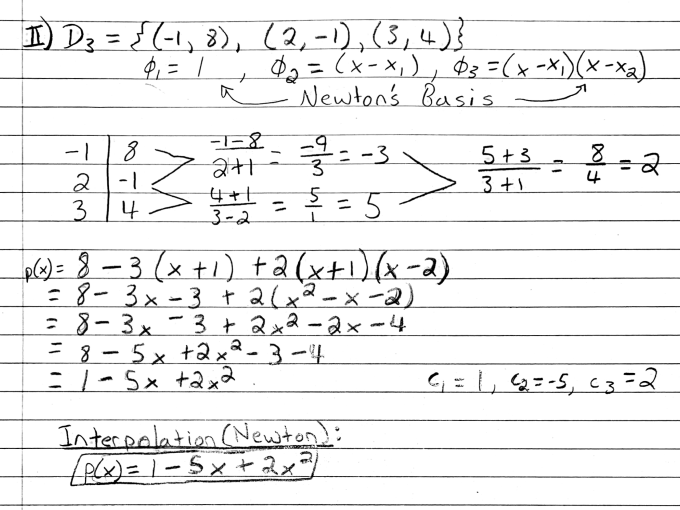 II) D₃ = {(-1, 8), (2, -1), (3, 4)}
ϕ₁ = 1 , ϕ₂ = (x-x₁) , ϕ₃ = (x-x₁)(x-x₂)
Newton's Basis
-1 | 8 (-1-8)/(2+1) = -9/3 = -3
2 | -1 (5+3)/(3+1) = 8/4 = 2
3 | 4 (4+1)/(3-2) = 5/1 = 5
p(x) = 8 - 3(x+1) + 2(x+1)(x-2)
= 8 - 3x - 3 + 2(x² - x - 2)
= 8 - 3x - 3 + 2x² - 2x - 4
= 8 - 5x + 2x² - 3 - 4
= 1 - 5x + 2x² c₁ = 1, c₂ = -5, c₃ = 2
Interpolation (Newton):
p(x) = 1 - 5x + 2x²